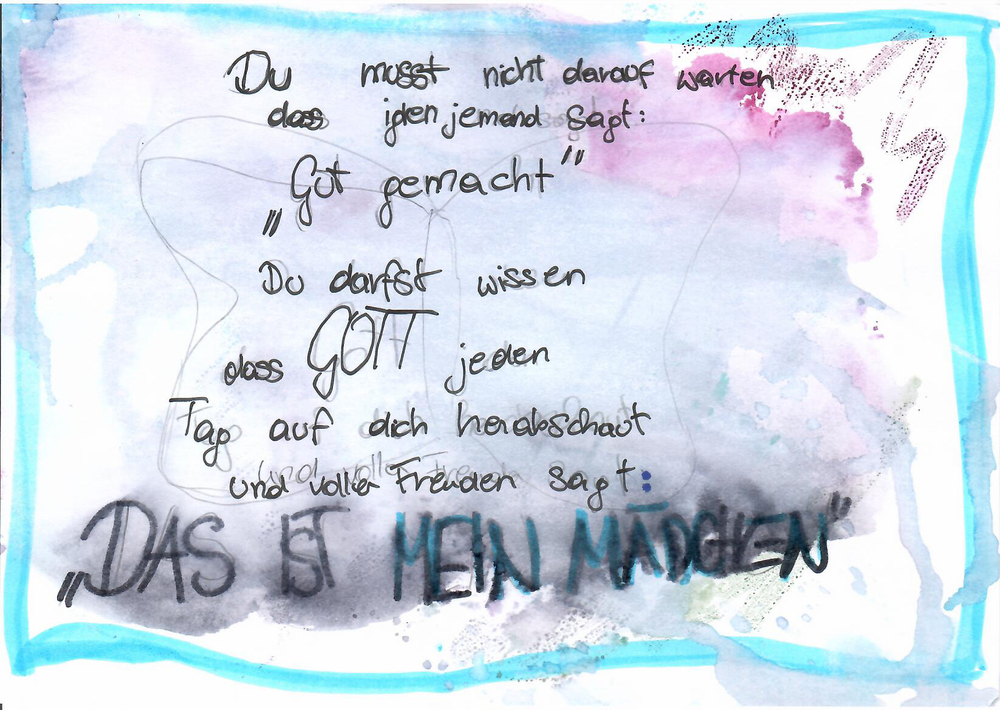 Du musst nicht darauf warten
dass jden jemand sagt:
„Gut gemacht"
Du darfst wissen
dass GOTT jeden
Tag auf dich herabschaut
und voller Freuden sagt:
„DAS IST MEIN MÄDCHEN"